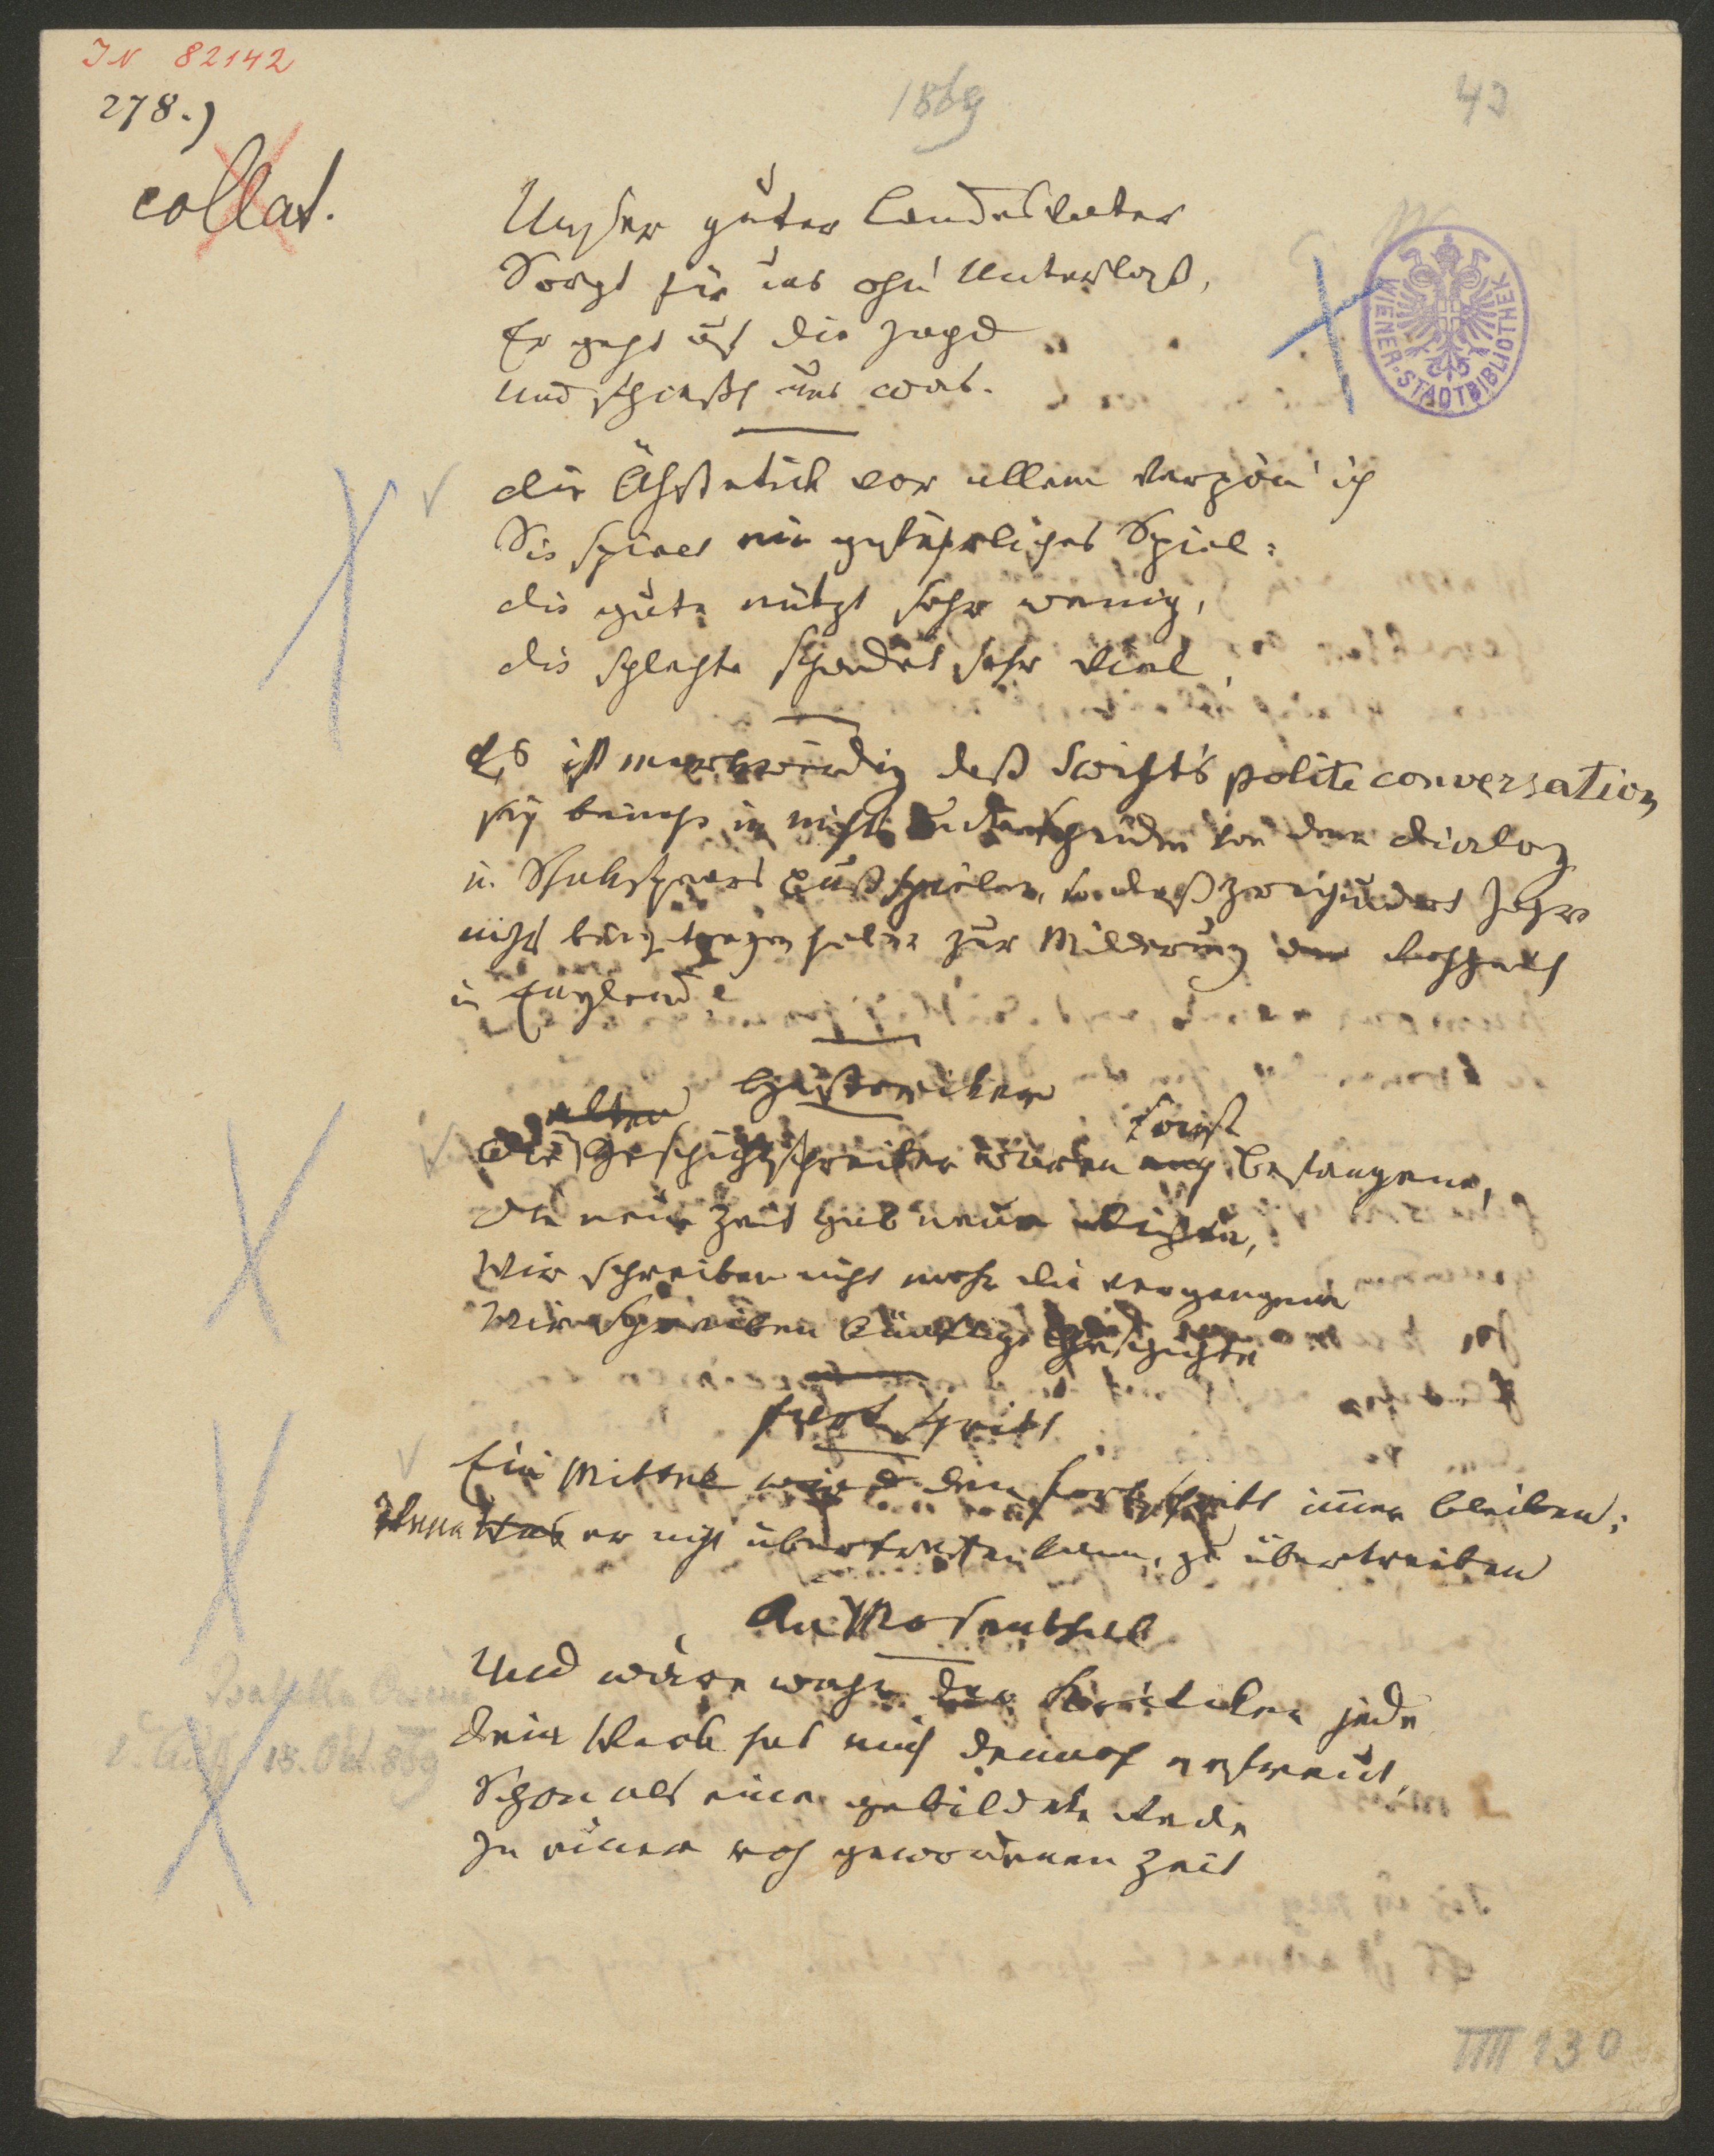 IN 82142
278.)
collat.
1869
42
WIENER STADTBIBLIOTHEK
Unser guter Landesvater
Sorgt für uns ohn' Unterlaß,
Er geht auf die Jagd
Und schießt uns was.
die Ästhetik vor allem verpön' ich
Sie spielt ein gefährliches Spiel:
die gute nützt sehr wenig,
die schlechte schadet sehr viel.
Es ist merkwürdig daß Swift's polite conversation
sich beinahe in nichts unterscheidet von dem Dialog
in Shakspeares Lustspielen, so daß zweihundert Jahre
nichts beigetragen haben zur Milderung der Rohheit
in England.
Historiker
alten
Die Geschichtschreiber waren sonst Befangene,
die neue Zeit gab neue Wichte,
Wir schreiben nicht mehr die vergangene
Wir schreiben künftige Geschichte
Fortschritt
Ein Mittel wird dem Fortschritt immer bleiben:
Wenn was er nicht übertreffen kann, zu übertreiben
An Mosenthal
Und wäre wahr der Kritiken jede
dein Werk hat mich dennoch erfreut,
Schon als eine gebildete Rede
In einer roh gewordenen Zeit
Isabella Orsini
1. Auff 15. Okt. 869
130